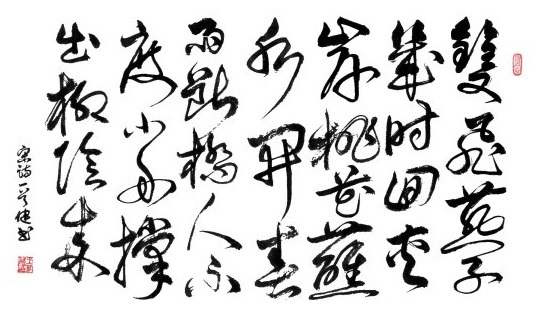 雙飛燕子
幾时回夾
岸桃花蘸
水開春
雨斷橋人不
度小舟撑
出柳陰來
宋詩